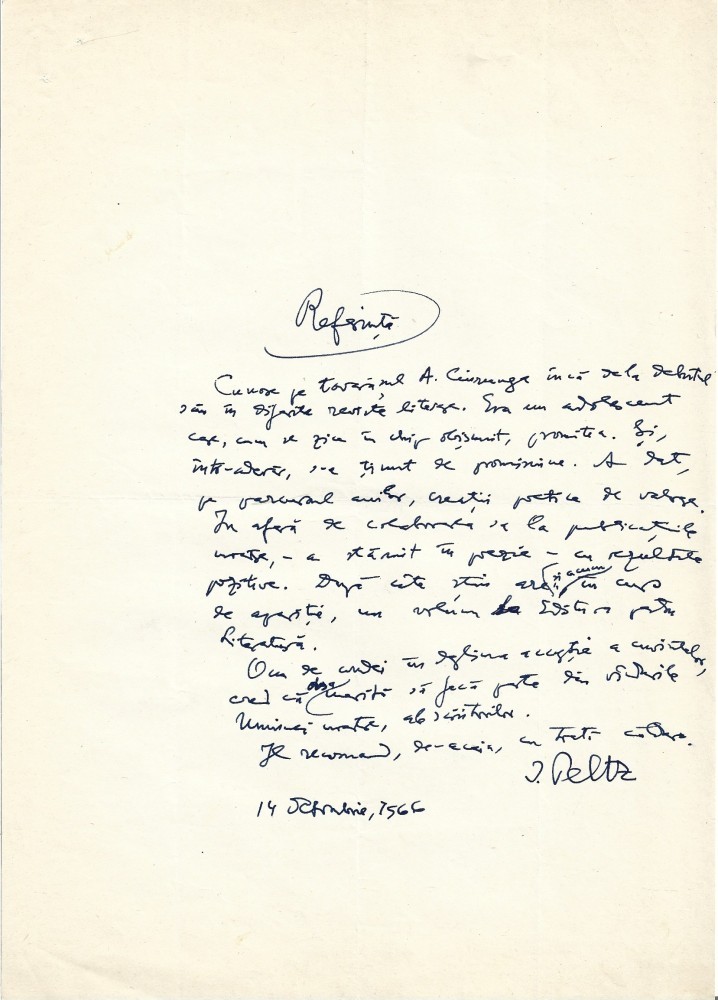 Referință
Cunosc pe tovarășul A. Ciurunga încă de la debutul
său în diferite reviste literare. Era un adolescent
care, cum se zice în chip obișnuit, promitea. Și,
într-adevăr, s-a ținut de promisiune. A dat,
pe parcursul anilor, creații poetice de valoare.
In afară de colaborarea sa la publicațiile
noastre, - a stăruit în poezie - cu rezultate
pozitive. După câte știu are și acum în curs
de apariție, un volum la Editura pentru
Literatură.
Om de condei în deplina accepție a cuvântului,
cred că merită să facă parte din rândurile
Uniunei noastre, ale scriitorilor.
Il recomand, de-aceia, cu toată căldura.
I. Peltz
14 Octombrie, 1966